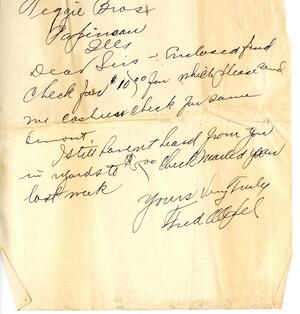 Peggie Bros
Papineau
Ills
Dear Sirs - Enclosed find
Check for $10.50 for which please send
me cashiers check for same
Amont.
I still havent heard from you
in regards to $5.00 check mailed you
last week
Yours Very Truly
Fred